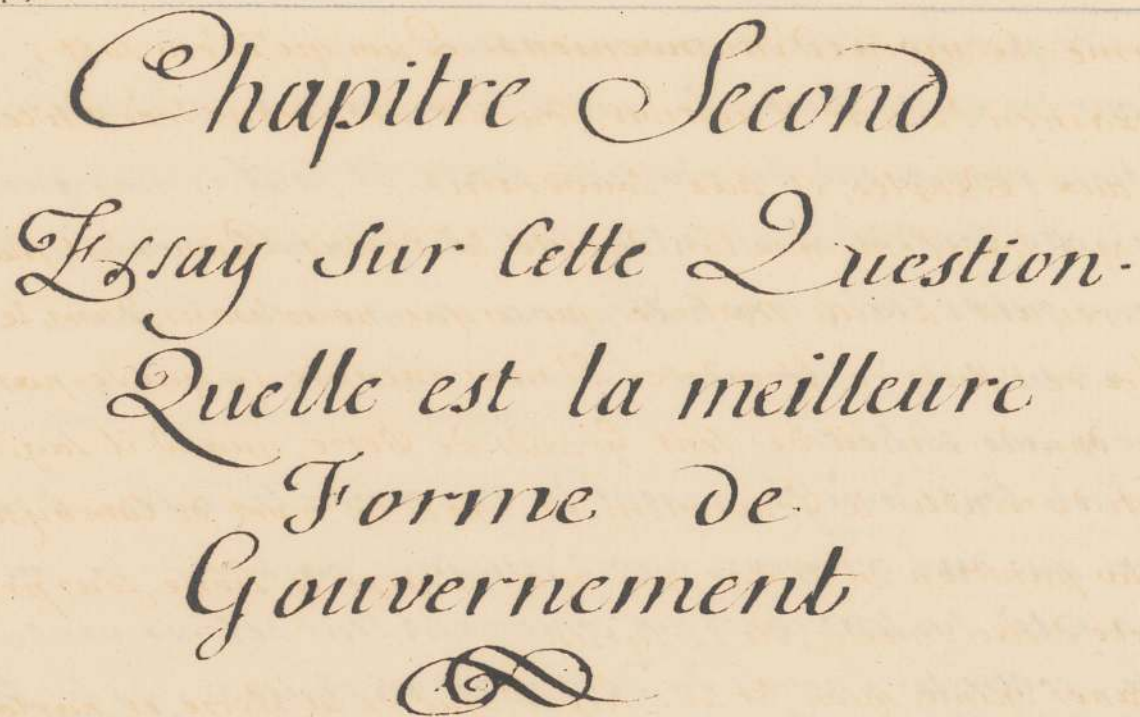 Chapitre Second
Essay sur Cette Question.
Quelle est la meilleure
Forme de
Gouvernement